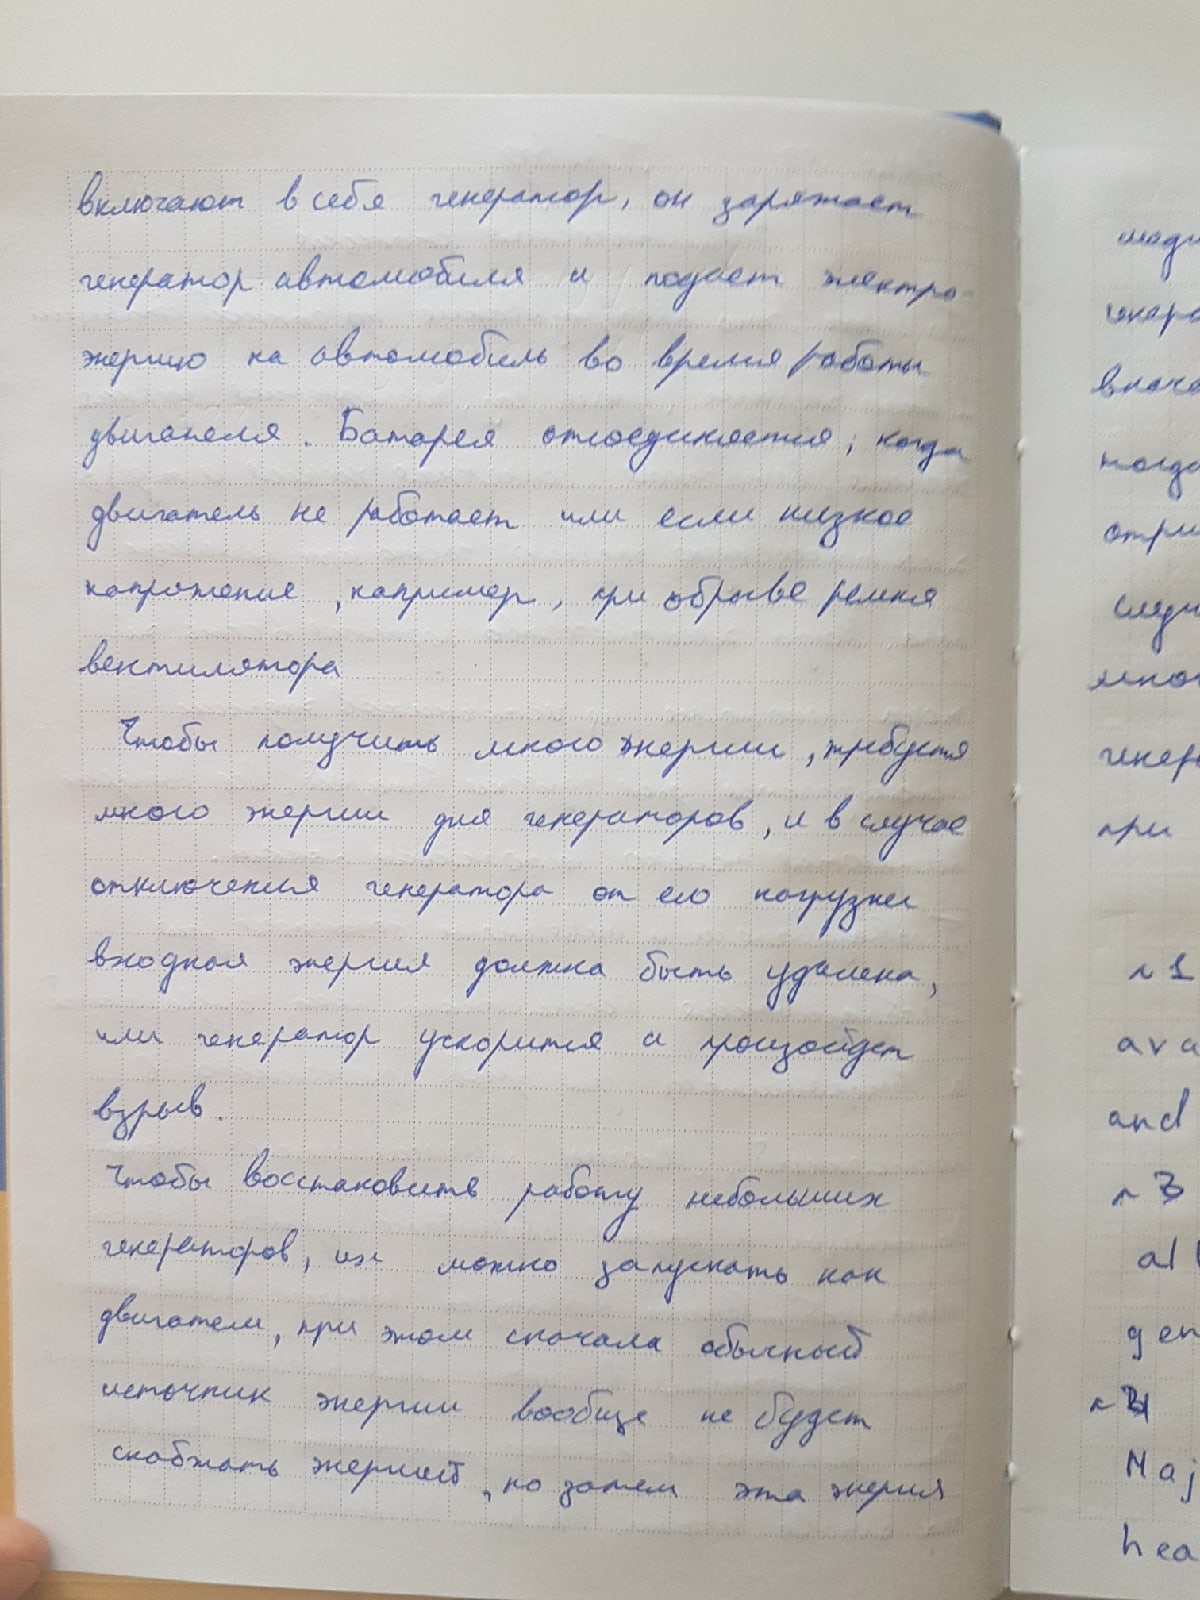 включают в себя генератор, он заряжает
генератор автомобиля и подает электро-
энергию на автомобиль во время работы
двигателя. Батарея отсоединяется, когда
двигатель не работает или если низкое
напряжение, например, при обрыве ремня
вентилятора
Чтобы получить много энергии, требуется
много энергии для генераторов, и в случае
отключения генератора от его нагрузки
входная энергия должна быть удалена,
или генератор ускорится и произойдет
взрыв.
Чтобы восстановить работу небольших
генераторов, их можно запускать как
двигатели, при этом сначала обычный
источник энергии вообще не будет
снабжать энергией, но затем эта энергия
генера
при
~1
ava
and
~3
al
gen
Maj
hea